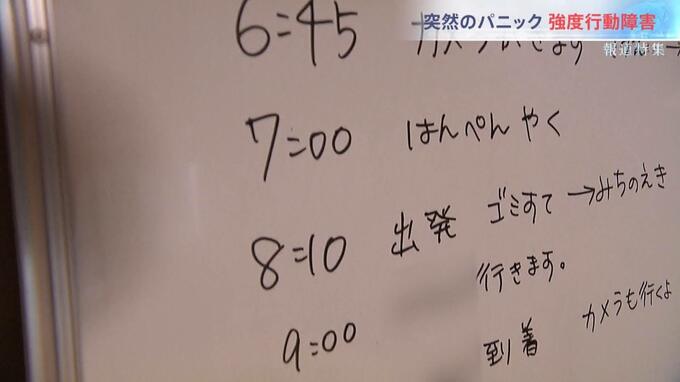 突然のパニック 強度行動障害
報道特集
6:45 カメラがきます
7:00 はんぺん やく
8:10 出発 ゴミすて →みちのえき
行きます。
9:00 到着 カメラも行くよ